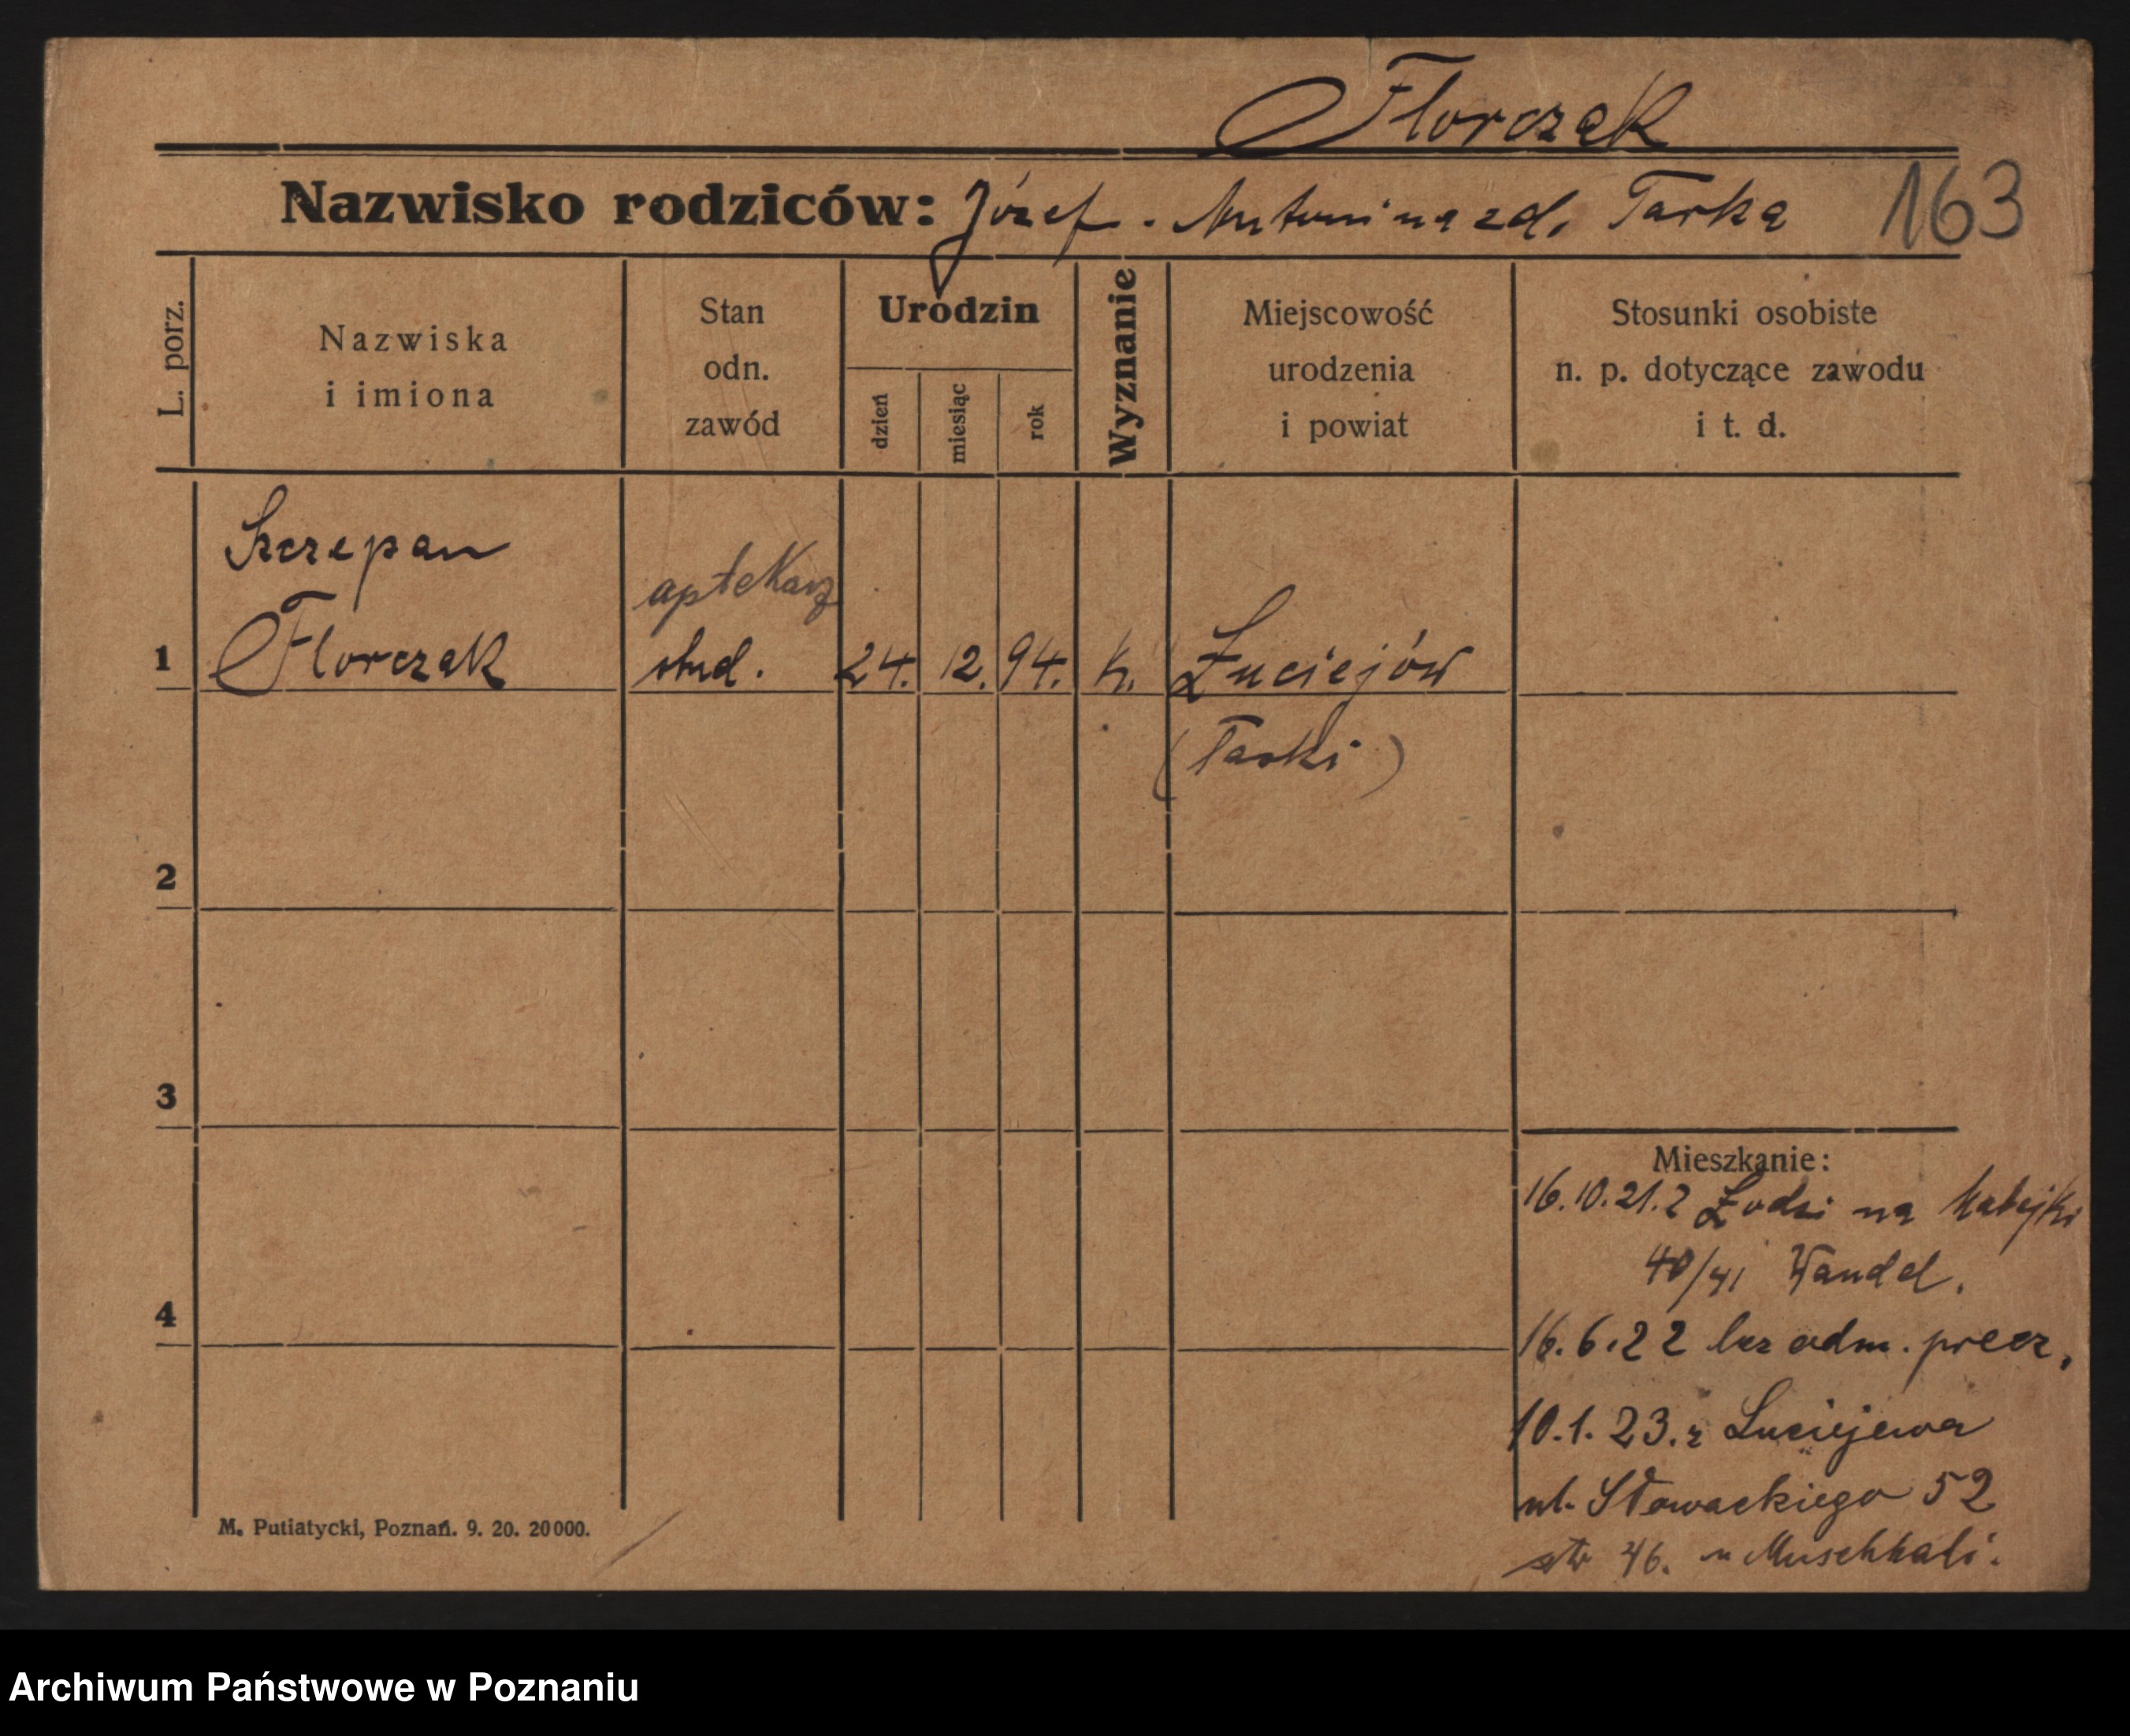 Florczak
Nazwisko rodziców: Józef - Antonina zd. Tarka 163
L. porz.
Nazwiska
i imiona
Stan
odn.
zawód
Urodzin
dzień
miesiąc
rok
Wyznanie
Miejscowość
urodzenia
i powiat
Stosunki osobiste
n. p. dotyczące zawodu
i t. d.
Szczepan
aptekarz
1 Florczak stud. 24. 12. 94. k. Łuciejów
(Taski)
2
3
Mieszkanie:
16.10.21. z Łodzi na
40/41
4
16.6.22 bez adm. precz,
10.1.23. z Luciejewa
ul. Słowackiego 52
46. u
M. Putiatycki, Poznań. 9. 20. 20000.
Archiwum Państwowe w Poznaniu